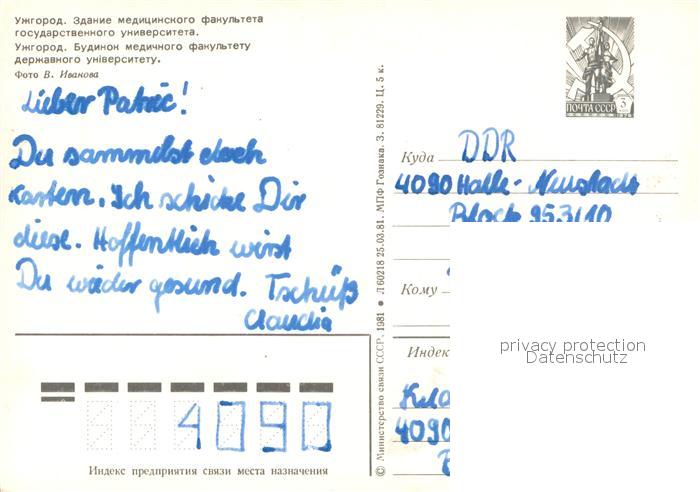 Ужгород. Здание медицинского факультета
государственного университета.
Ужгород. Будинок медичного факультету
державного університету.
Фото В. Иванова
Lieber Patric!
Du sammelst doch
Karten. Ich schicke Dir
diese. Hoffentlich wirst
Du wieder gesund. Tschüß
Claudia
© Министерство связи СССР, 1981 • Л 60218 25.03.81. МПФ Гознака. З. 81229. Ц. 5 к.
ПОЧТА СССР 3
Куда DDR
4090 Halle-Neustadt
Block 953/10
Кому
Индек
Кла
4090
privacy protection
Datenschutz
4090
Индекс предприятия связи места назначения